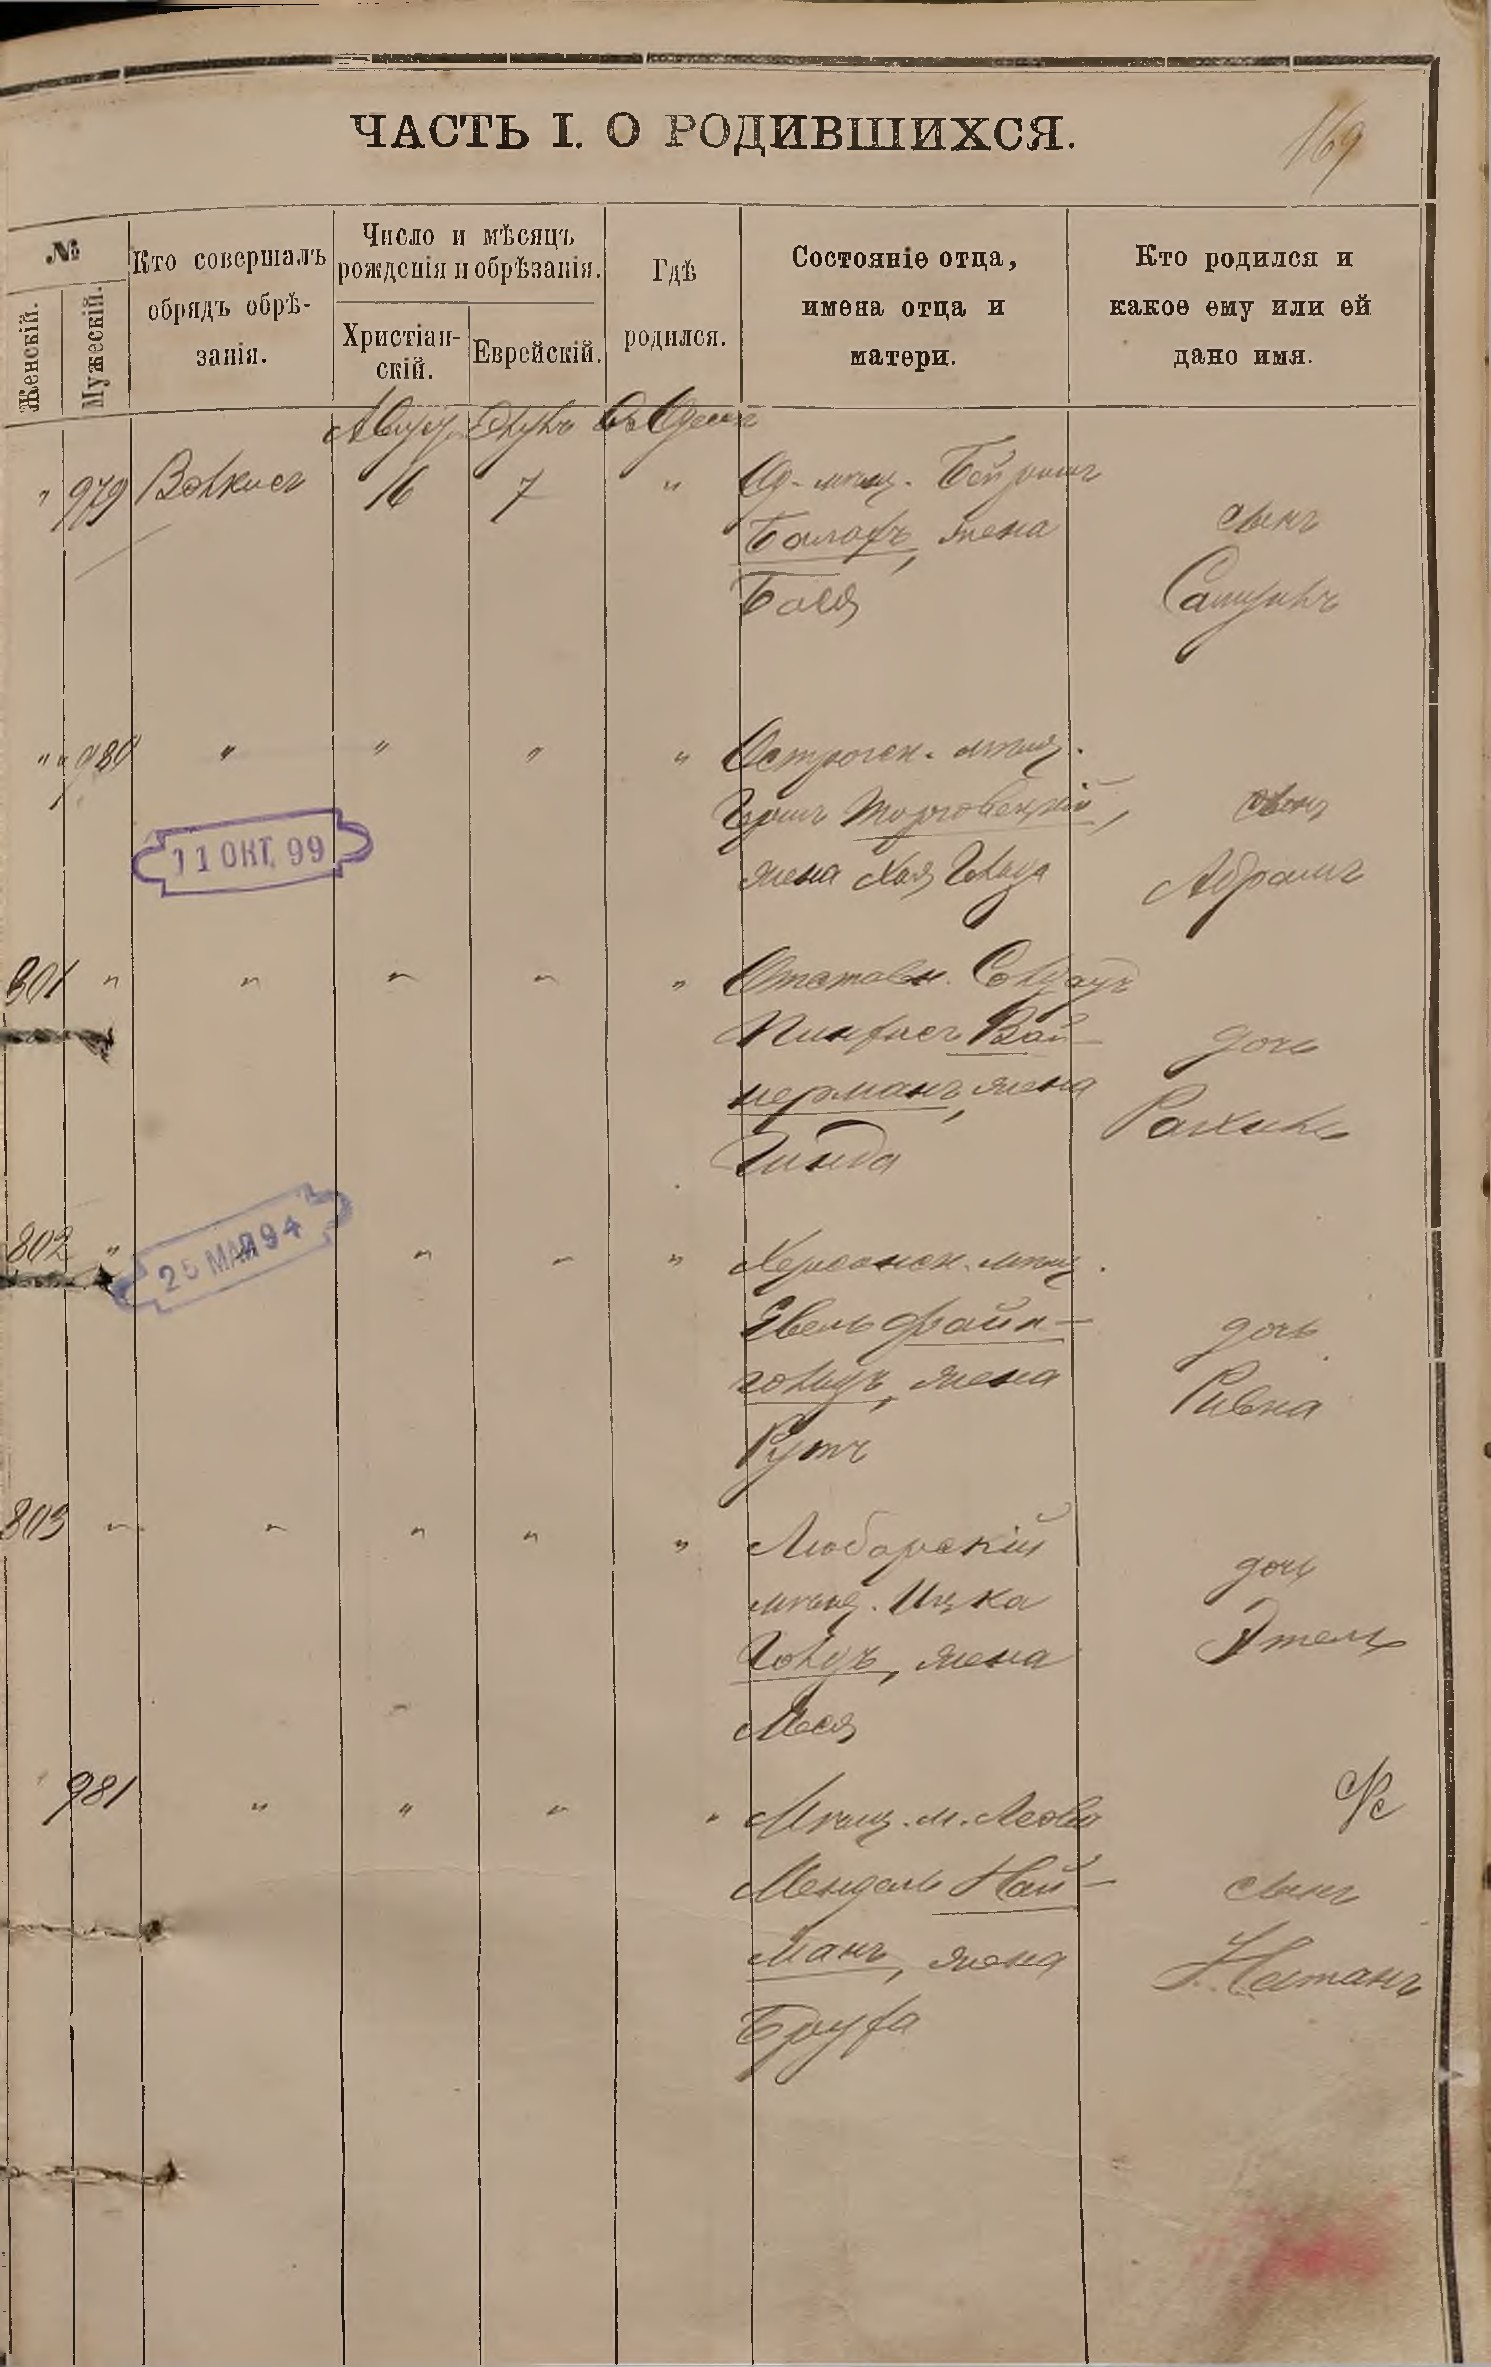 ЧАСТЬ I. О РОДИВШИХСЯ.
169
№
Женскій.
Мужескій.
Кто совершалъ
обрядъ обрѣ-
занія.
Число и мѣсяцъ
рожденія и обрѣзанія.
Христіан-
скій.
Еврейскій.
Гдѣ
родился.
Состояніе отца,
имена отца и
матери.
Кто родился и
какое ему или ей
дано имя.
Август Элулъ Въ Одессѣ
" 979 16 7 " Од. мѣщ.
жена
Бася
сынъ
Самуилъ
" " 980 " " " " Острогск. мѣщ.
Герш Торговецкій,
жена Хая Гольда
сынъ
Абрамъ
11 ОКТ. 99
801 " " " " " Отставн. Солдатъ
Пинхасъ Вай-
нерманъ, жена
Гинда
дочь
Рахиль
802 " " " " " Херсонск. мѣщ.
Эвель Файн-
гольдъ, жена
Рутъ
дочь
Ривка
25 МАЯ 94
803 " " " " " Любарскій
мѣщ. Ицка
Гольдъ, жена
дочь
Этель
981 " " " " Мѣщ. м. Леова
Мендель Най-
манъ, жена
Бруха
сынъ
Натанъ